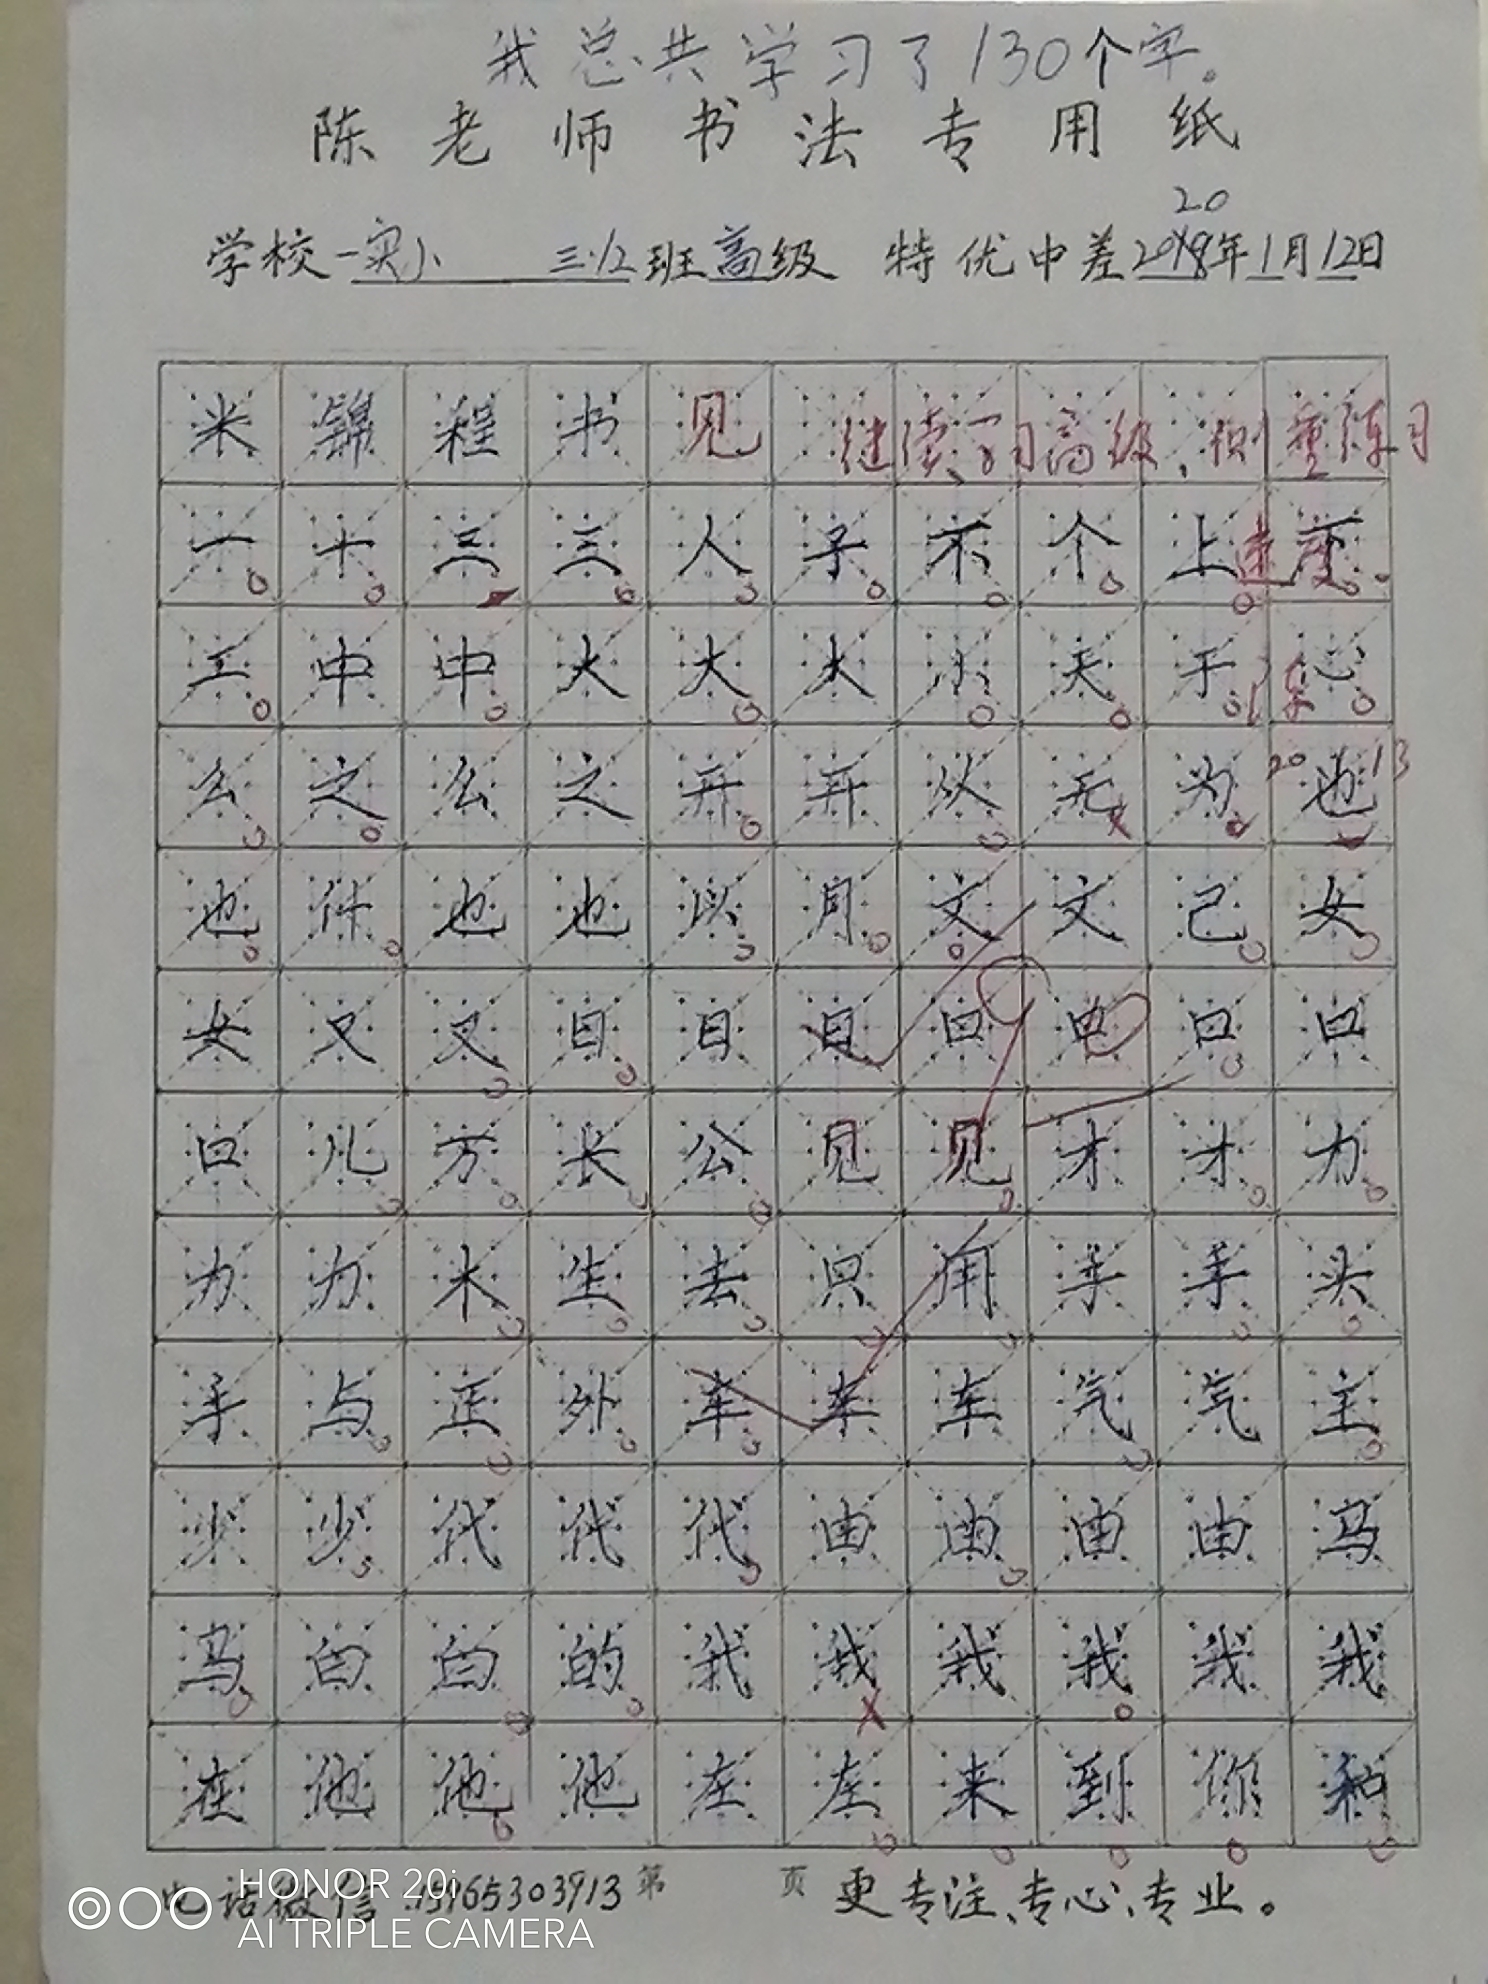 我总共学习了130个字。
陈老师书法专用纸
学校一实小 三.12班高级 特优中差2020年1月12日
米锦程书见 继续学习高级、侧重练习
一十三三人子不个上下
速度。
工中中大大大小天于心
么之么之开开从无为也
20 13
也什也也以月文文己女
女又叉日日日曰电口口
口儿万长公见见才才力
力力木生去只用手手头
手与正外车车车汽汽主
少少代代代由由由由马
马白白的我我我我我我
在他他他左左来到你和
电话微信:15165303913 第 页 更专注、专心、专业。
HONOR 20i
AI TRIPLE CAMERA